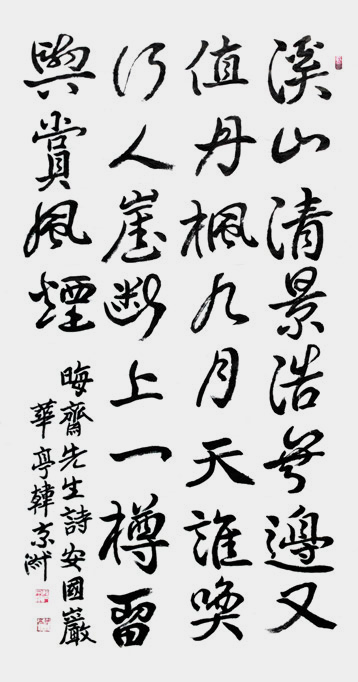 溪山清景浩無邊又
值丹楓九月天誰喚
行人崖斷上一樽留
與賞風煙
晦齋先生詩安國巖
華亭韓京